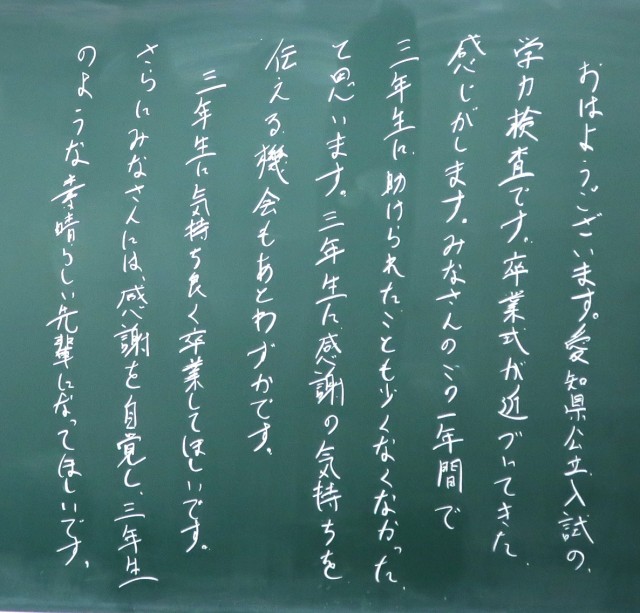 おはようございます。愛知県公立入試の、
学力検査です。卒業式が近づいてきた
感じがします。みなさんのこの一年間で
三年生に助けられたことも少なくなくなかった
て思います。三年生に感謝の気持ちを
伝える機会もあとわずかです。
三年生に気持ち良く卒業してほしいです。
さらにみなさんには、感謝を自覚し、三年生
のような素晴らしい先輩になってほしいです。